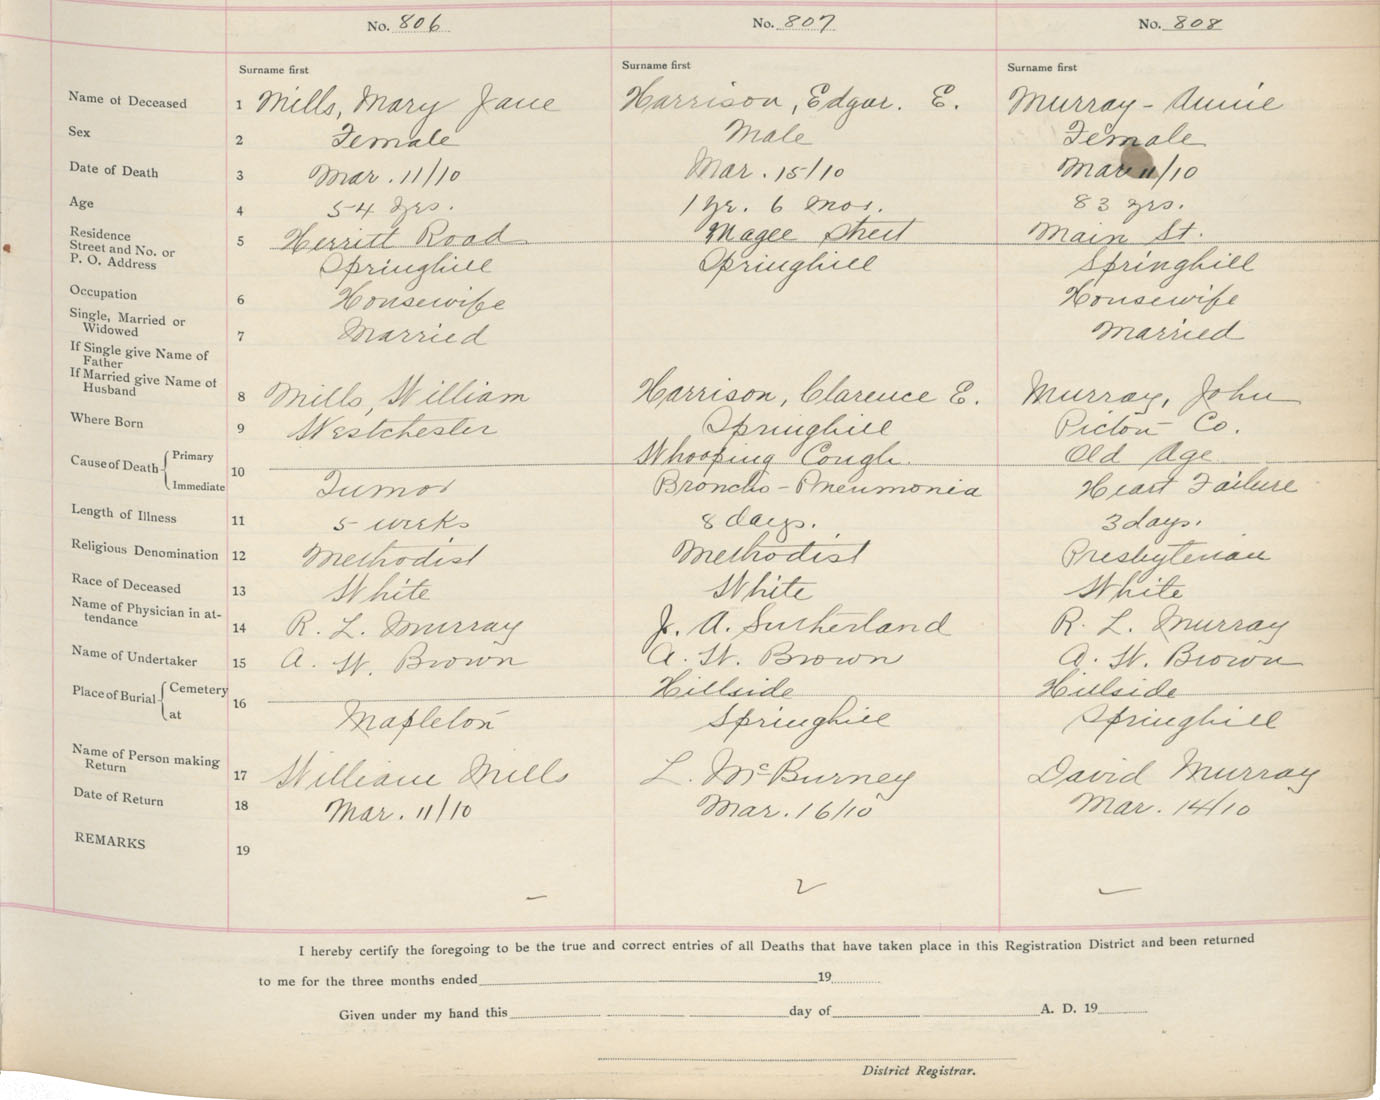 No. 806 No. 807 No. 808
Surname first Surname first Surname first
Name of Deceased 1 Mills, Mary Jane Harrison, Edgar. E. Murray - Annie
Sex 2 Female Male Female
Date of Death 3 Mar. 11/10 Mar. 15/10 Mar 11/10
Age 4 54 yrs. 1 yr. 6 mos. 83 yrs.
Residence
Street and No. or 5 Herritt Road Magee Street Main St.
P. O. Address Springhill Springhill Springhill
Occupation 6 Housewife Housewife
Single, Married or
Widowed 7 Married Married
If Single give Name of
Father
If Married give Name of
Husband 8 Mills, William Harrison, Clarence E. Murray, John
Where Born 9 Westchester Springhill Pictou Co.
Cause of Death Primary 10 Whooping Cough. Old Age
Immediate Tumor Broncho-Pneumonia Heart Failure
Length of Illness 11 5 weeks 8 days. 3 days.
Religious Denomination 12 Methodist Methodist Presbyterian
Race of Deceased 13 White White White
Name of Physician in at-
tendance 14 R. L. Murray J. A. Sutherland R. L. Murray
Name of Undertaker 15 A. W. Brown A. W. Brown A. W. Brown
Place of Burial Cemetery 16 Hillside Hillside
at Mapleton Springhill Springhill
Name of Person making
Return 17 William Mills L. McBurney David Murray
Date of Return 18 Mar. 11/10 Mar. 16/10 Mar. 14/10
REMARKS 19
I hereby certify the foregoing to be the true and correct entries of all Deaths that have taken place in this Registration District and been returned
to me for the three months ended 19
Given under my hand this day of A. D. 19
District Registrar.